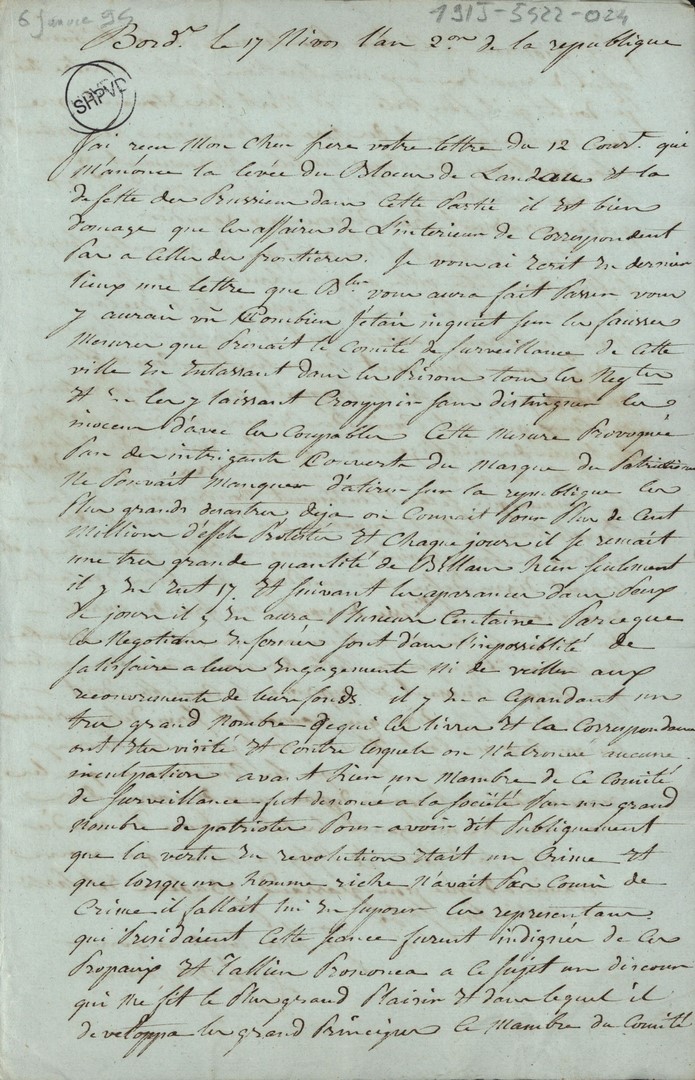 6 Janvier 94
191J-5422-024
Bord.x le 17 Nivos l'an 2.on de la republique
SHPVD
J'ai recu Mon cher frere votre lettre du 12 Cour.t qui
M'anonce la levée du Blocus de Landau et la
defette des Prussiens dans Cette Partie il est bien
domage que les affaires de L'interieur ne Correspondent
Pas a Celles des frontieres. Je vous ai ecrit en dernier
lieux une lettre que vous aura fait Passer vous
y auriez vu Combien J'étais inquiet sur les fausses
Mesures que Prenait le Comité de Surveillance de Cette
ville en Entassant dans les Prisons tous les Neg.ts
et en les y laissant Croupir sans distinguer les
inocens d'avec les Coupables Cette Mesure Provoquée
Par des intrigants Couverts du Masque du Patriotisme
Ne Pouvait Manquer d'atirer sur la republique les
Plus grands desastres deja on Connait Pour Plus de Cent
Millions d'effets Protestés et Chaque jour il se remait
une tres grande quantité de Billans hier seulement
il y en eut 17. et suivant les aparances dans Peu
de jours il y en aura Plusieurs Centaines Parceque
les Negotians enfermés sont dans l'impossiblité de
satisfaire a leurs Engagements Ni de veiller aux
recouvrements de leurs fonds il y en a Cependant un
tres grand Nombre dequi les livres et la Correspondance
ont eté visité et Contre lesquels on N'a trouvé aucune
inculpation avant hier un Mambre de ce Comité
de surveillance fut denoncé a la Société Par un grand
Nombre de patriotes Pour avoir dit Publiquement
que la vertu en revolution etait un Crime et
que lorsqu'un homme riche N'avait Pas Comis de
Crime il fallait lui en suposer les representans
qui Presidaient Cette seance furent indignés de Ces
Propaux et Tallien Prononca a ce sujet un discours
qui me fit le Plus grand Plaisir et dans lequel il
developpa les grands Principes Ce Mambre du Comité